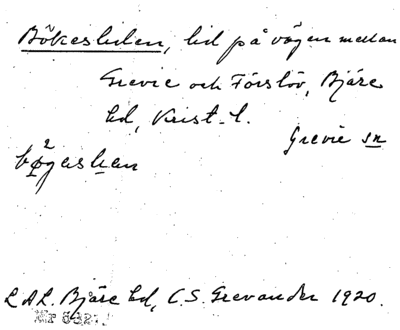 Bökesliden, lid på vägen mellan
Grevie och Förslöv, Bjäre
hd, Krist. l.
Grevie sn
L A L. Bjäre hd, C. S. Grevander 1920.